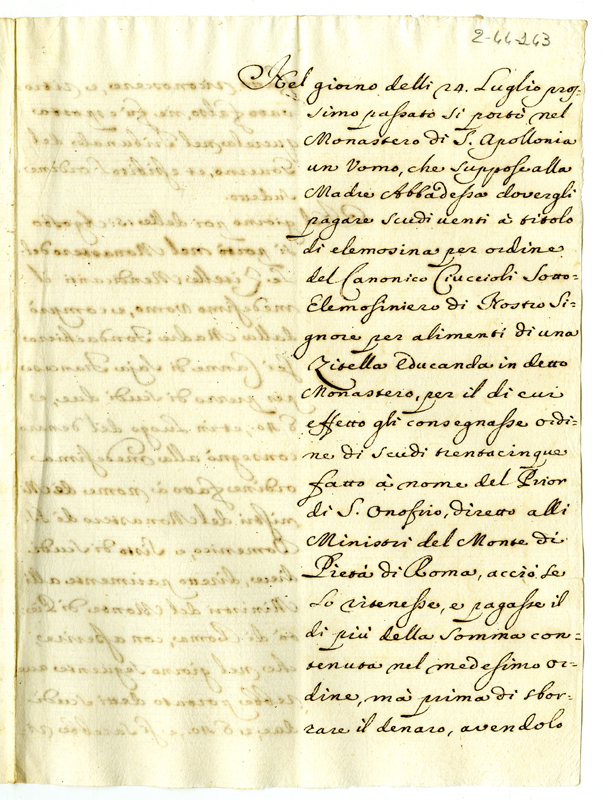 2-44-143
Nel giorno delli 24. Luglio pros-
simo passato si portò nel
Monastero di S. Apollonia
un Vomo, che suppose alla
Madre Abbadessa dovergli
pagare scudi venti à titolo
di elemosina per ordine
del Canonico Ciuccioli Sotto=
Elemosiniero di Nostro Si=
gnore per alimenti di una
Zitella Educanda in detto
Monastero, per il di cui
effetto gli consegnasse ordi=
ne di scudi trentacinque
fatto à nome del Prior
di S. Onofrio, diretto alli
Ministri del Monte di
Pietà di Roma, acciò se
lo ritenesse, e pagasse il
di più della somma con=
tenuta nel medesimo or=
dine, mà prima di sbor=
rare il denaro, avendolo